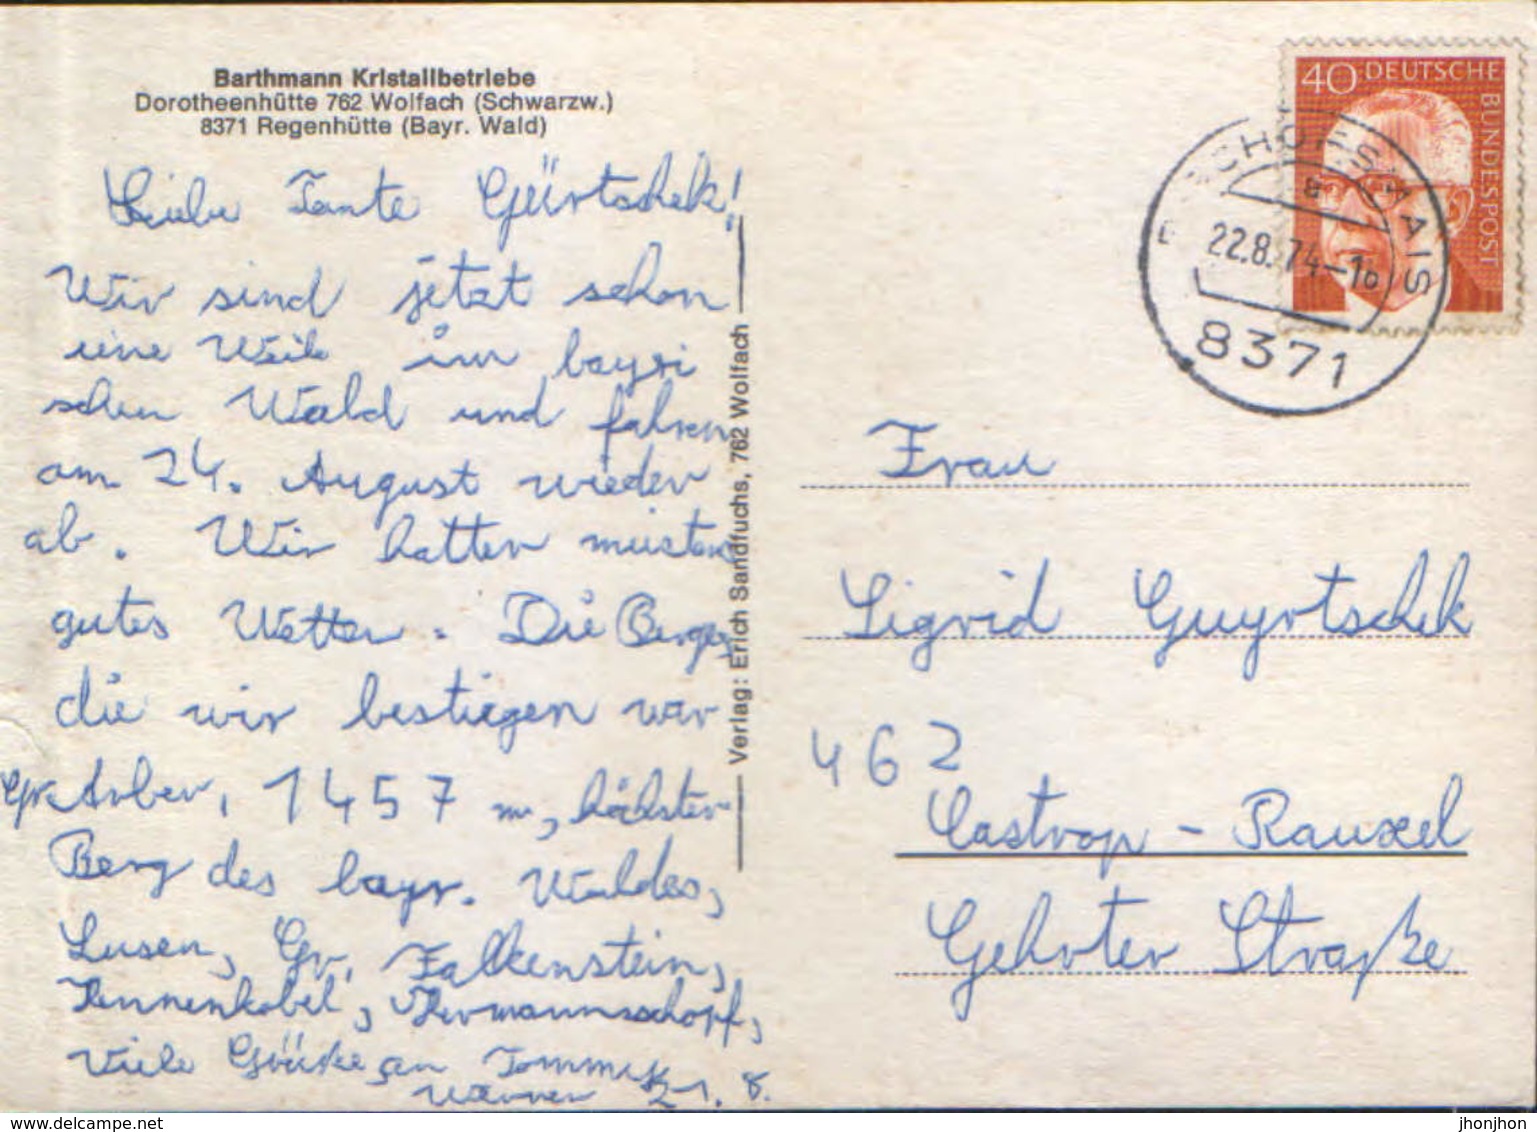 Barthmann Kristallbetriebe
Dorotheenhütte 762 Wolfach (Schwarzw.)
8371 Regenhütte (Bayr. Wald)
Liebe Tante Gürtschek!
Wir sind jetzt schon
eine Weile im bayri
schen Wald und fahren
am 24. August wieder
ab. Wir hatten meistens
gutes Wetter. Die Berge,
die wir bestiegen war
Gr. Arber, 1457 m, höchster
Berg des bayr. Waldes,
Lusen, Gr. Falkenstein,
Hennenkobel, Hermannsschopf,
Viele Grüße an Tommy
21. 8.
Verlag: Erich Sandfuchs, 762 Wolfach
40 DEUTSCHE
BUNDESPOST
BISCHOFSMAIS
a
22.8.74-18
8371
Frau
Sigrid Guyrtschek
462
Castrop-Rauxel
Gehrter Straße
delcampe.net
jhonjhon